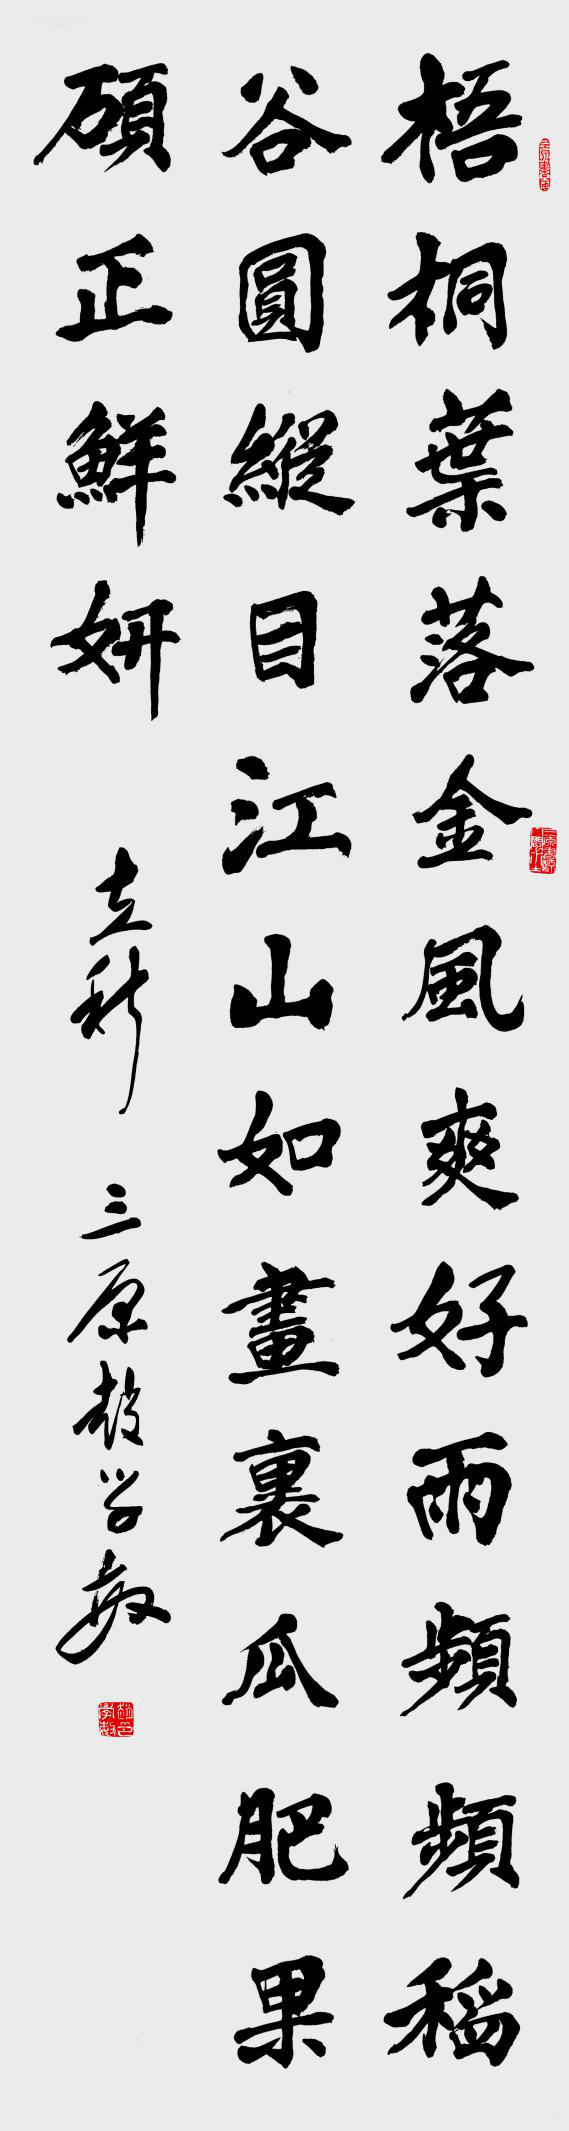 梧桐葉落金風爽好雨頻頻稻
谷圓縱目江山如畫裏瓜肥果
碩正鮮妍
立秋
三原趙学敏
趙學敏印